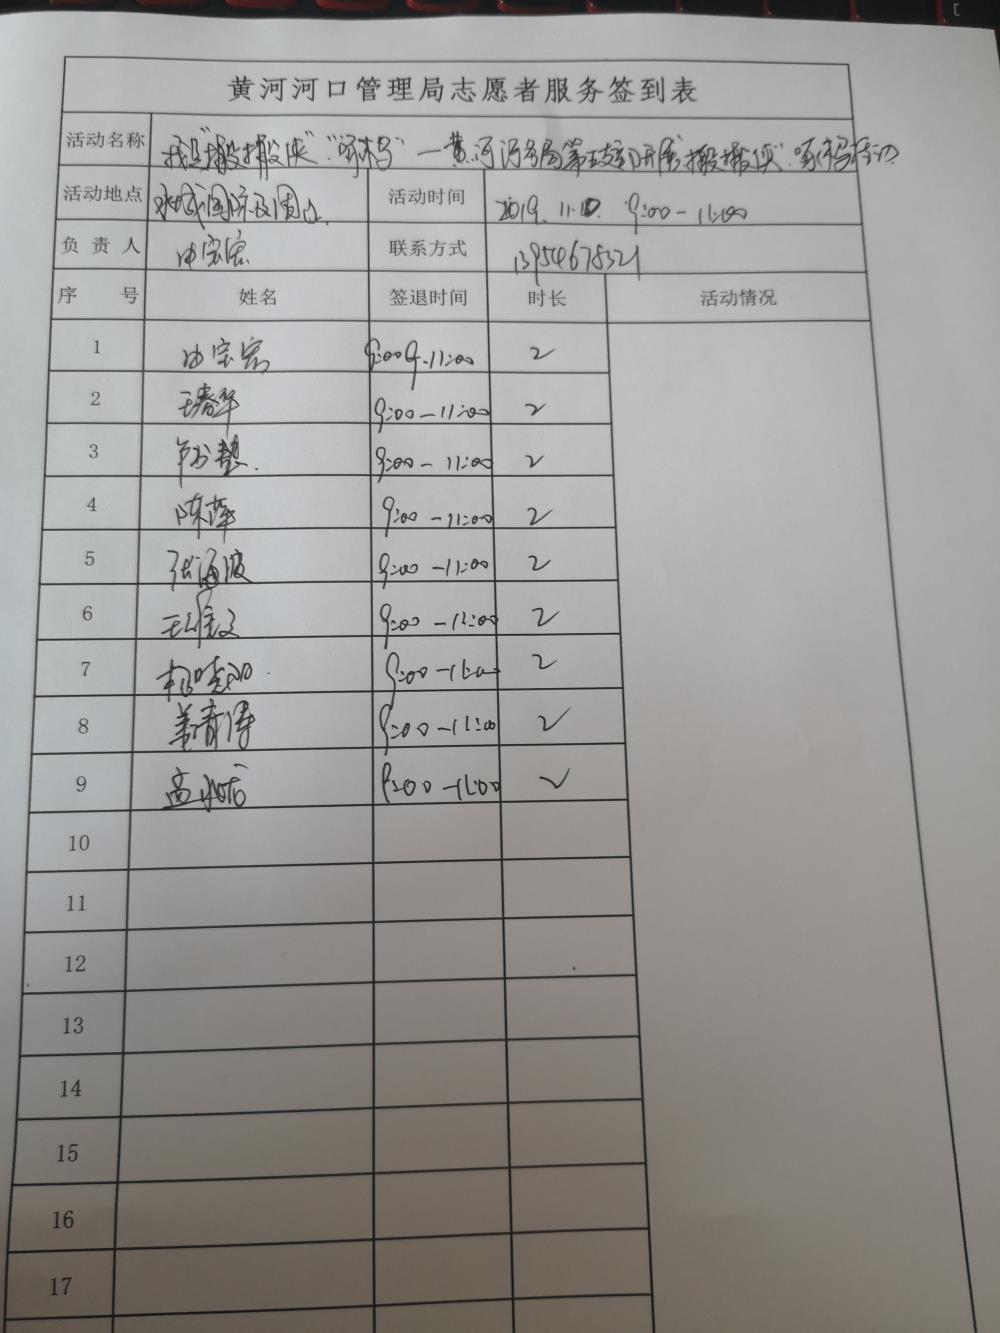 黄河河口管理局志愿者服务签到表
活动名称 我是"搬搬侠""啄木鸟"—黄河河口局第五支部开展"搬搬侠"啄木鸟行动
活动地点 水城国际及周边 活动时间 2019.11.10. 9:00-11:00
负责人 由宝宏 联系方式 13954678321
序号 姓名 签退时间 时长 活动情况
1 由宝宏 9:00-11:00 2
2 王春华 9:00-11:00 2
3 9:00-11:00 2
4 陈萍 9:00-11:00 2
5 张海波 9:00-11:00 2
6 9:00-11:00 2
7 9:00-11:00 2
8 姜清涛 9:00-11:00 2
9 9:00-11:00 2
10
11
12
13
14
15
16
17